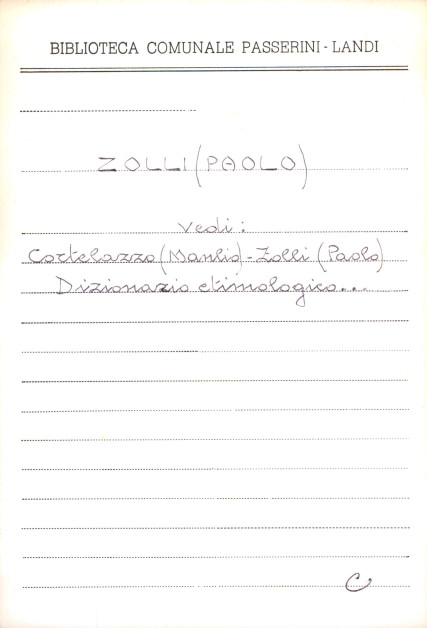 BIBLIOTECA COMUNALE PASSERINI - LANDI
ZOLLI (PAOLO)
Vedi:
Cortelazzo (Manlio) - Zolli (Paolo)
Dizionario etimologico...
C